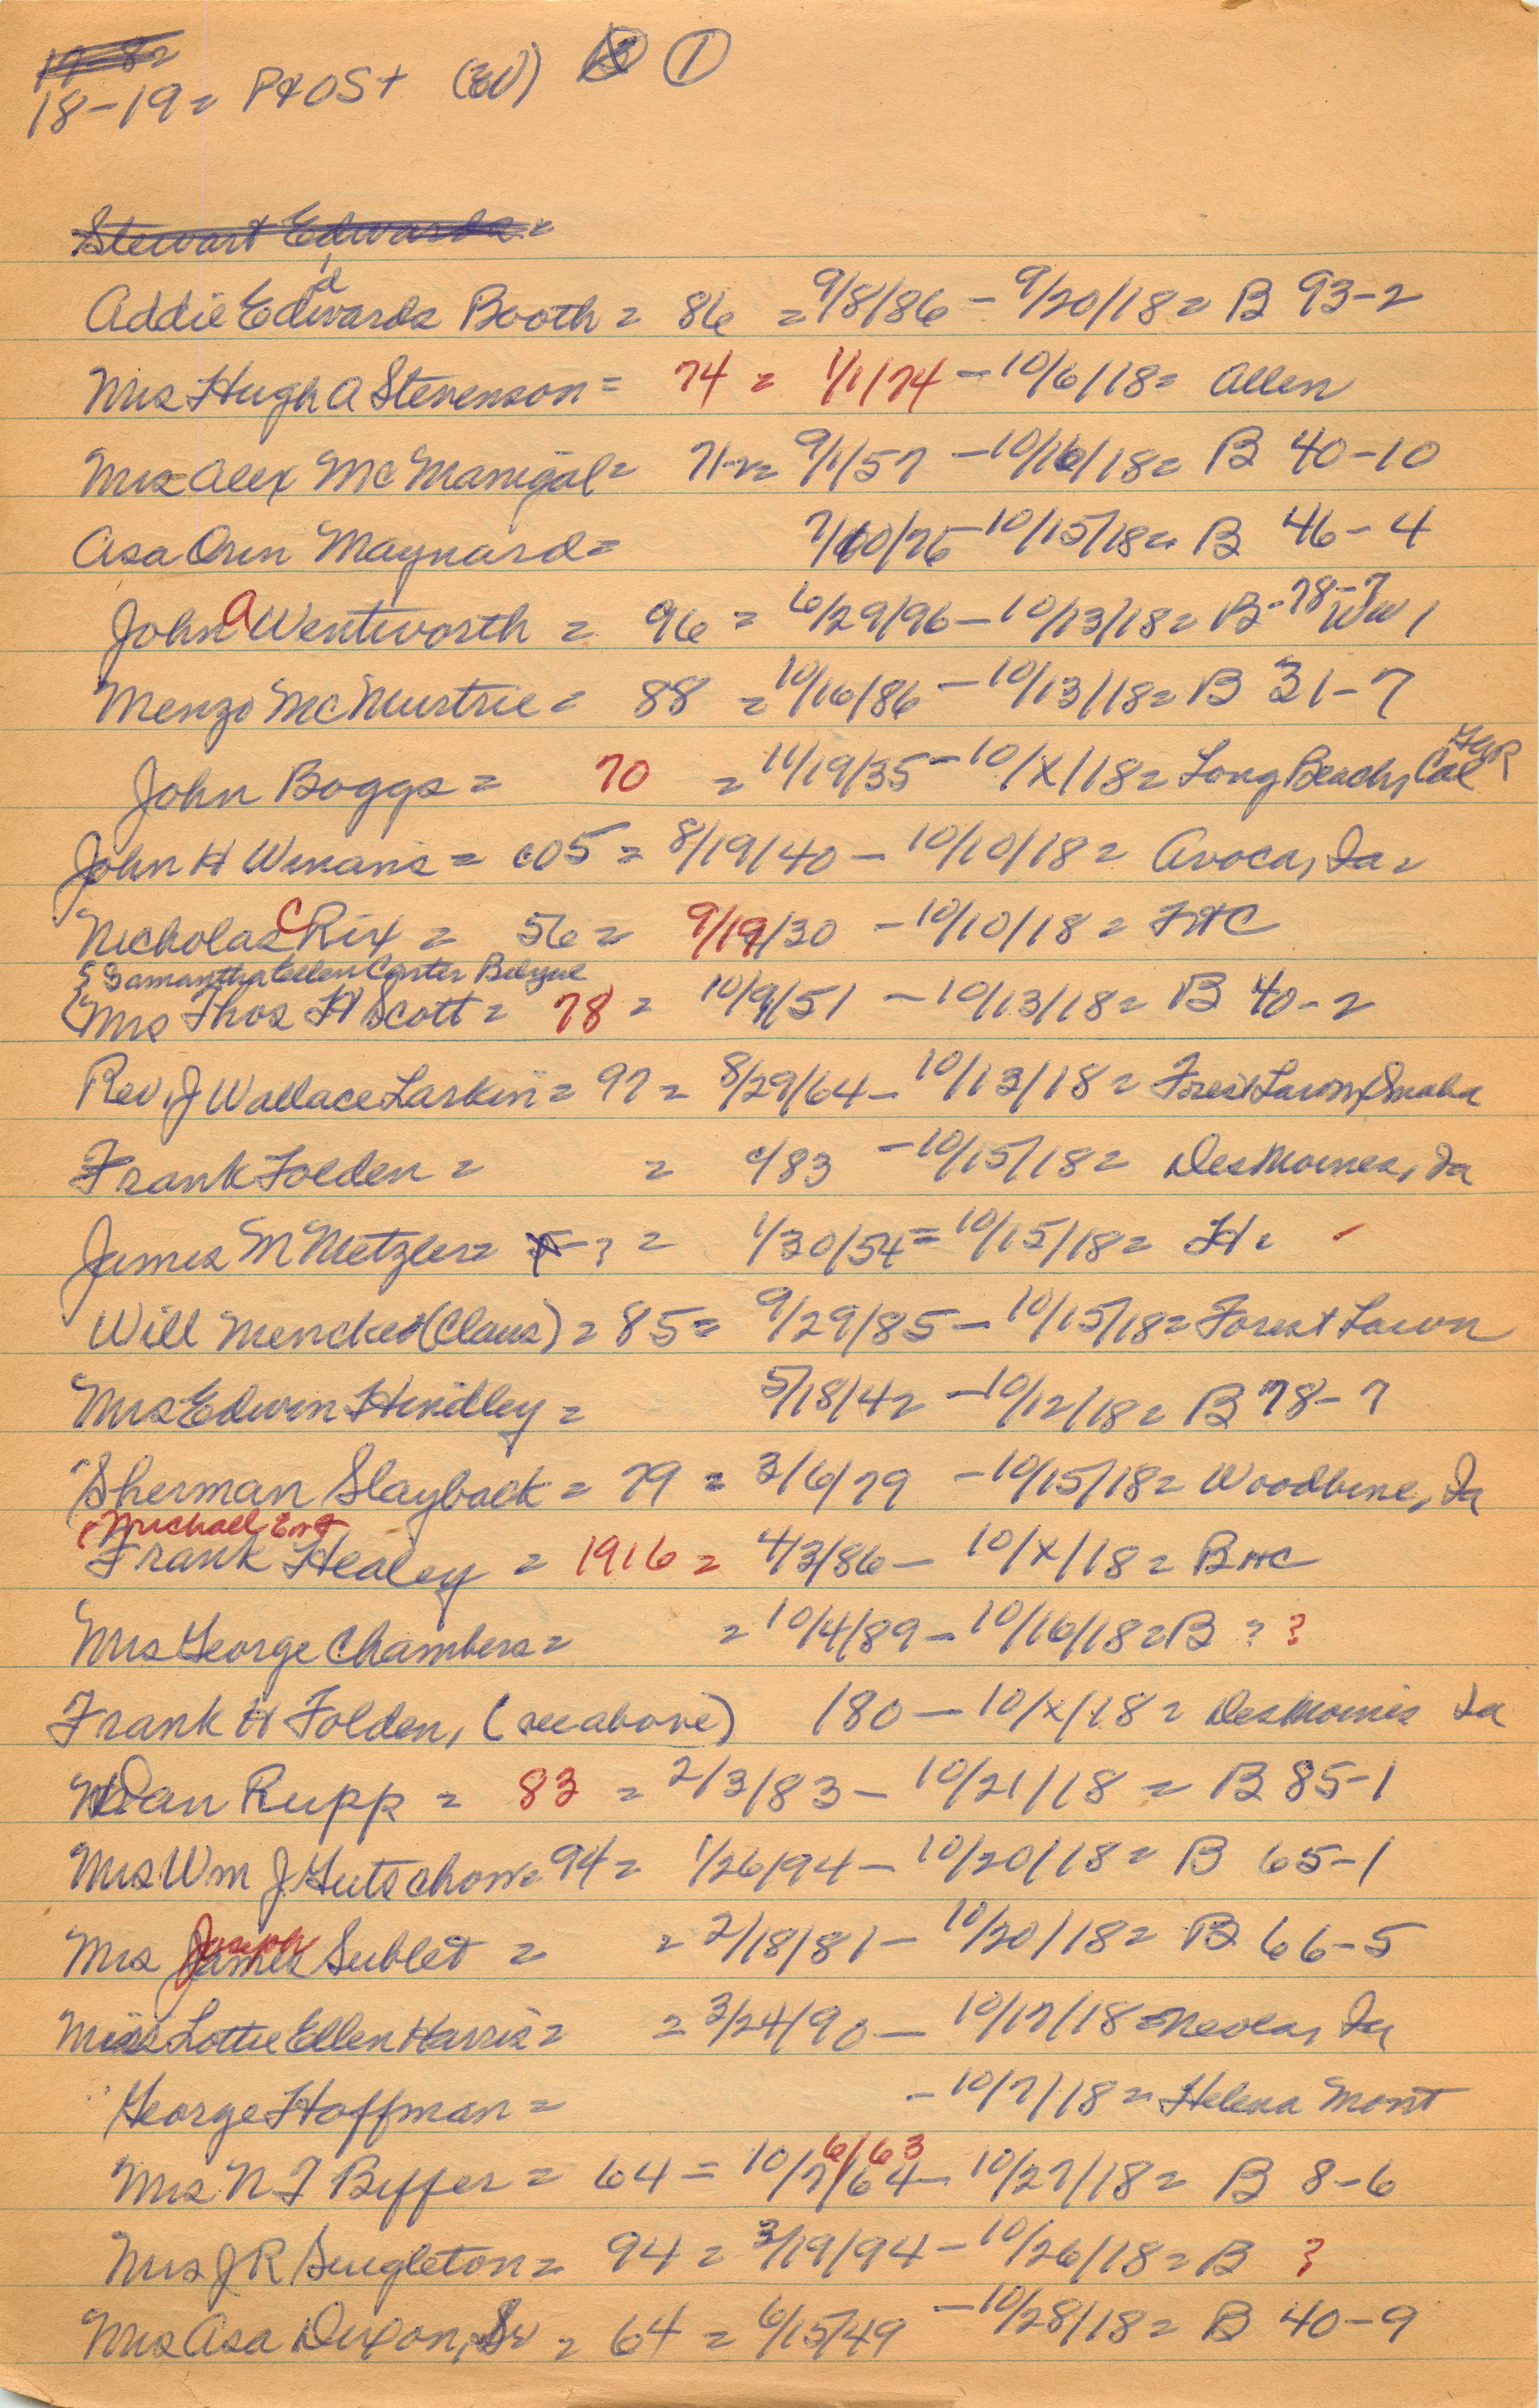 18-19= P+OST (EW) ①
Stewart Edwards =
Addie Edwards Booth = 86 = 9/8/86 - 9/20/18 = B 93-2
Mrs Hugh A Stevenson = 74 = 1/1/74 - 10/6/18 = Allen
Mrs Alex McManigal = 71-2 = 9/1/57 - 10/16/18 = B 40-10
Asa Oren Maynard = 7/10/76 - 10/15/18 = B 46-4
John A Wentworth = 96 = 6/29/96 - 10/13/18 = B-78-7 WW 1
Menzo McMurtrie = 88 = 10/16/86 - 10/13/18 = B 31-7
John Boggs = 70 = 11/19/35 - 10/X/18 = Long Beach, Cal GAR
John H Winans = 05 = 8/19/40 - 10/10/18 = Avoca, Ia =
Nicholas C Rix = 56 = 9/19/30 - 10/10/18 = HC
Samantha Ellen Carter
Mrs Thos H Scott = 78 = 10/9/51 - 10/13/18 = B 40-2
Rev. J Wallace Larkin = 97 = 8/29/64 - 10/13/18 = Forest Lawn, Omaha
Frank Folden = = c/83 - 10/15/18 = Des Moines, Ia
James M Metzler = ? = 1/30/54 = 10/15/18 = H =
Will Mencke (Claus) = 85 = 9/29/85 - 10/15/18 = Forest Lawn
Mrs Edwin Hindley = 5/18/42 - 10/12/18 = B 78-7
Sherman Slayback = 79 = 3/6/79 - 10/15/18 = Woodbine, Ia
Michael
Frank Healey = 1916 = 4/3/86 - 10/X/18 = BHC
Mrs George Chambers = = 10/4/89 - 10/16/18 = B ? ?
Frank H Folden, (see above) 180 - 10/X/18 = Des Moines Ia
Dan Rupp = 83 = 2/3/83 - 10/21/18 = B 85-1
Mrs Wm J Gutschow = 94 = 1/26/94 - 10/20/18 = B 65-1
Mrs Joseph Sublet = = 2/18/81 - 10/20/18 = B 66-5
Miss Lottie Ellen Harris = = 3/24/90 - 10/17/18 = Neola, Ia
George Hoffman = - 10/7/18 = Helena Mont
6/63
Mrs N J Biffer = 64 = 10/7/64 - 10/27/18 = B 8-6
Mrs J R Singleton = 94 = 3/19/94 - 10/26/18 = B ?
Mrs Asa Dixon, Sr = 64 = 6/15/49 - 10/28/18 = B 40-9